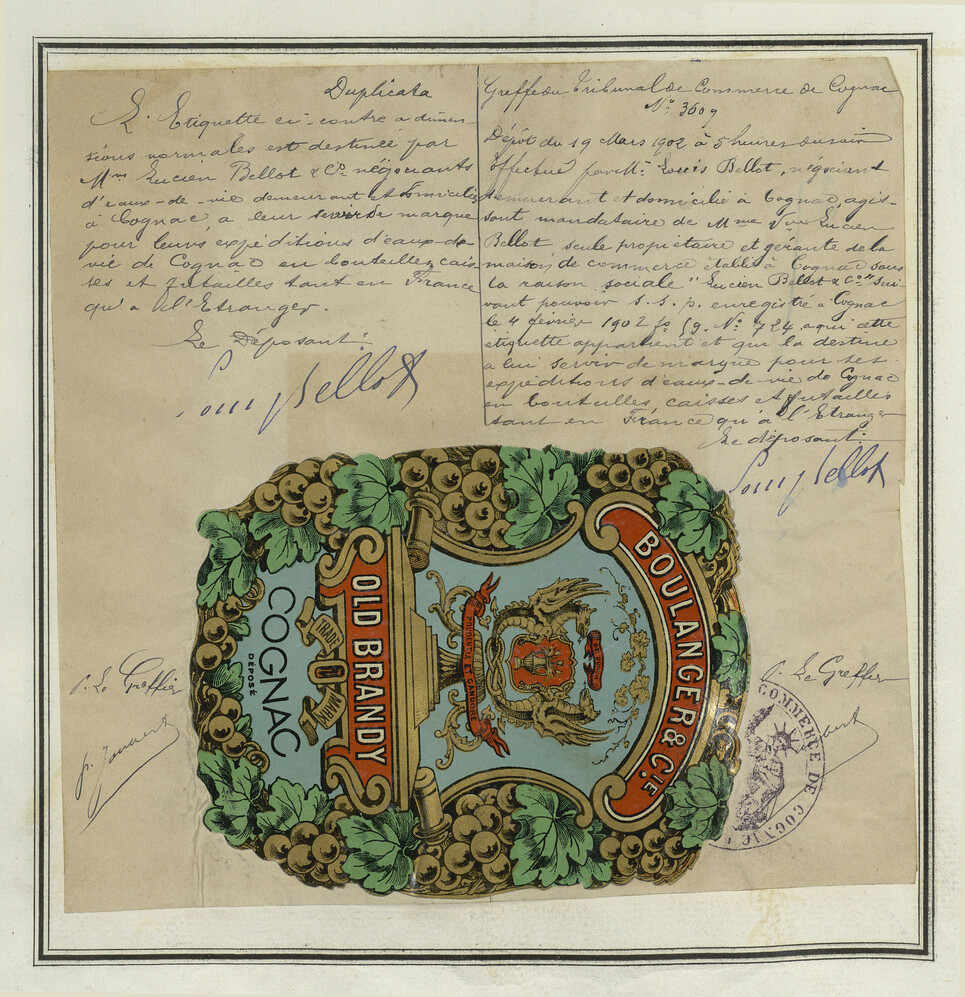 Duplicata
L'Etiquette ci-contre a dimen-
sions normales est destinée par
Mme Lucien Bellot & Cie négociants
d'eaux-de-vie demeurant et domiciliés
à Cognac a leur servir de marque
pour leurs expéditions d'eaux-de-
vie de Cognac en bouteilles, cais-
ses et futailles tant en France
qu'a l'Etranger.
Le Déposant:
Louis Bellot
Greffe du Tribunal de Commerce de Cognac
No. 3609
Dépôt du 19 Mars 1902 à 5 heures du soir
Effectué par Mr. Louis Bellot, négociant
demeurant et domicilié à Cognac, agis-
sant mandataire de Mme Vve Lucien
Bellot seule propriétaire et gérante de la
maison de commerce établie à Cognac sous
la raison sociale "Lucien Bellot & Co" Sui-
vant pouvoir s. s. p. enregistré à Cognac
le 4 février 1902 fo 59. No. 724 a qui cette
etiquette appartient et qui la destine
a lui servir de marque pour ses
expéditions d'eaux-de-vie de Cognac
en bouteilles, caisses et futailles
tant en France qu'à l'Etranger
Le déposant:
Louis Bellot
BOULANGER & CIE
PRUDENTIA ET CANDORE
OLD BRANDY
TRADE MARK
COGNAC
DÉPOSÉ
p. Le Greffier
p. Le Greffier
COMMERCE DE COGNAC